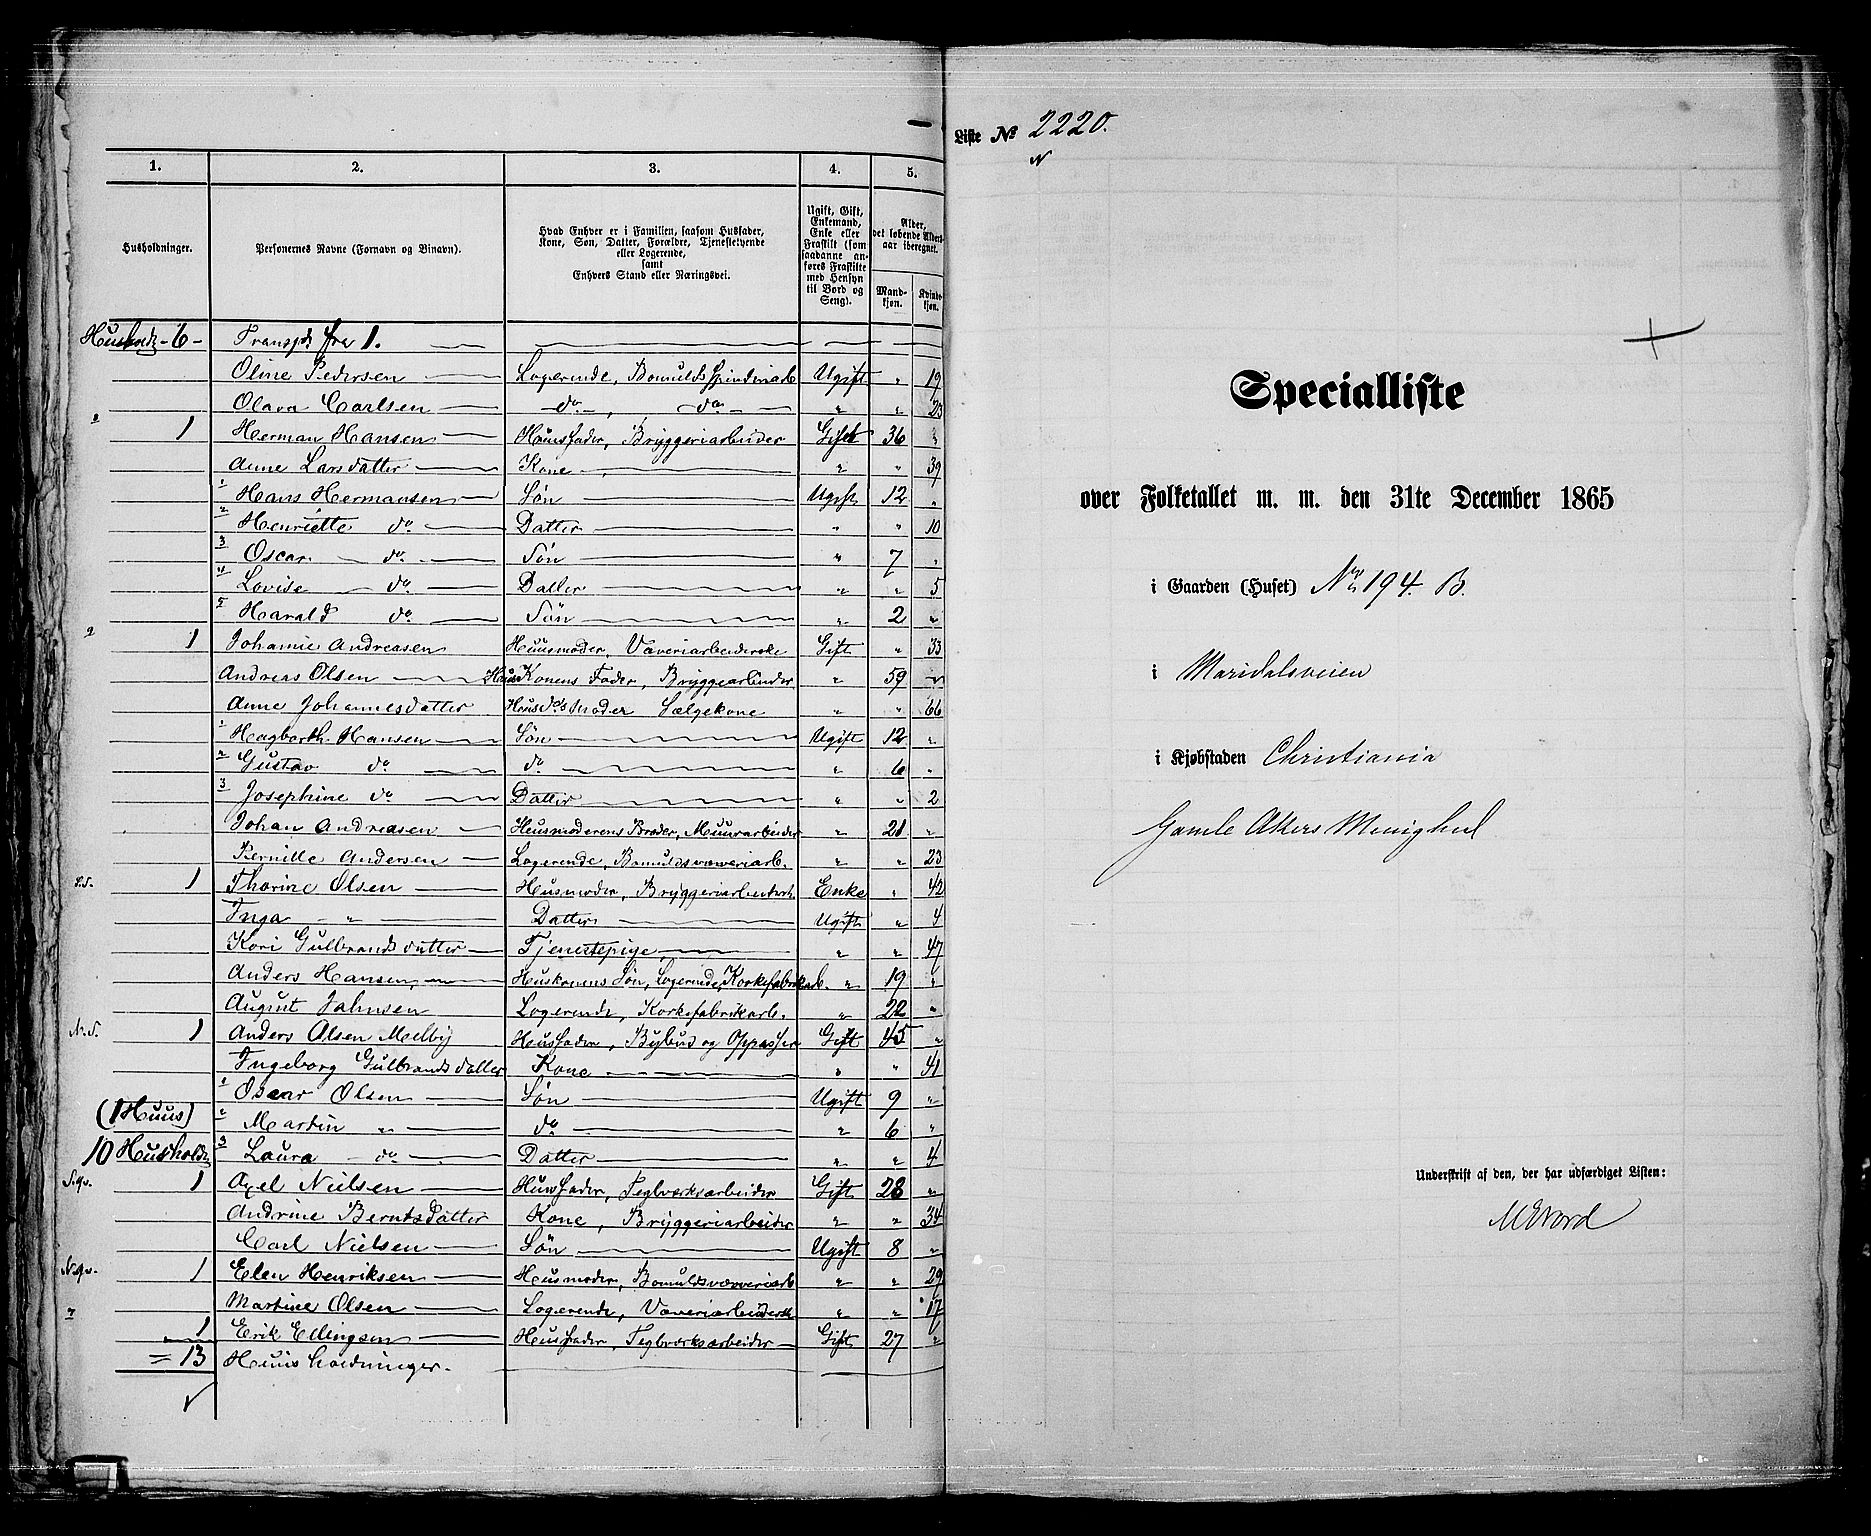 1. 2. 3. 4. 5.
Husholdninger. Personernes Navne (Fornavn og Binavn). Hvad Enhver er i Familien, saasom Husfader, Kone, Søn, Datter, Forældre, Tjenestetyende eller Logerende, samt Enhvers Stand eller Næringsvei. Ugift, Gift, Enkemand, Enke eller Fraskilt (som saadanne anføres Fraskilte med Hensyn til Bord og Seng). Alder, det løbende Alders-aar iberegnet.
Mandkjøn. Kvindekjøn.
Husholdg - 6 - Transpt. fra 1.
Oline Pedersen Logerende, Bomulds Spinderiarb Ugift " 19
Olava Carlsen do , do " " 23
1 Herman Hansen Huusfader, Bryggeriarbeider Gift 36 "
Anne Larsdatter Kone " " 39
1 Hans Hermansen Søn Ugift 12 "
2 Henriette do Datter " " 10
3 Oscar do Søn " 7 "
4 Lovise do Datter " " 5
5 Harald do Søn " 2 "
1 Johanne Andreasen Huusmoder, Væveriarbeiderske Gift " 33
Andreas Olsen Huus Konens Fader, Bryggearbeider " 59 "
Anne Johannesdatter Huus do's Moder Sælgekone " " 66
1 Hagbarth Hansen Søn Ugift 12 "
2 Gustav do do " 6 "
3 Josephine do Datter " " 2
Johan Andreasen Huusmoderens Broder, Muurarbeider " 21 "
Pernille Andersen Logerende, Bomuldsvæveriarb. " " 23
1 Thorine Olsen Husmoder, Bryggeriarbeidersk Enke " 42
Inga " Datter Ugift " 4
Kari Gulbrandsdatter Tjenestepige " " 47
Anders Hansen Huskonens Søn, Logerende, Korkefabrikarb. " 19 "
August Jahnsen Logerende, Korkefabrikarb. " 22 "
1 Anders Olsen Melby Huusfader, Bybud og Oppasser Gift 45 "
Ingeborg Gulbrandsdatter Kone " " 41
1 Oscar Olsen Søn Ugift 9 "
(1 Huus) 2 Martin " do " 6 "
10 Husholdg 3 Laura do Datter " " 4
1 Axel Nielsen Huusfader, Teglværksarbeider Gift 28 "
Andrine Berntsdatter Kone, Bryggeriarbeider " " 34
Carl Nielsen Søn Ugift 8 "
1 Elen Henriksen Husmoder, Bomuldsvæveriarb " " 29
Martine Olsen Logerende, Væveriarbeidersk " " 17
1 Erik Ellingsen Huusfader, Teglværksarbeider Gift 27 "
= 13 Huusholdninger.
Liste No 2220.
Specialliste
over Folketallet m. m. den 31te December 1865
i Gaarden (Huset) No 194. B.
i Maridalsveien
i Kjøbstaden Christiania
Gamle Akers Menighed
Underskrift af den, der har udfærdiget Listen: